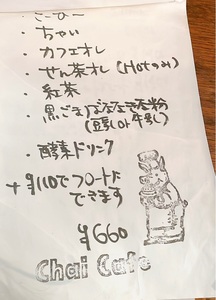 ・こーひー
・ちゃい
・カフェオレ
・せん茶オレ(Hotのみ)
・紅茶
・黒ごまバナナきな粉
(豆乳or牛乳)
・酵素ドリンク
+¥110でフロートに
できます
¥660
Chai Cafe